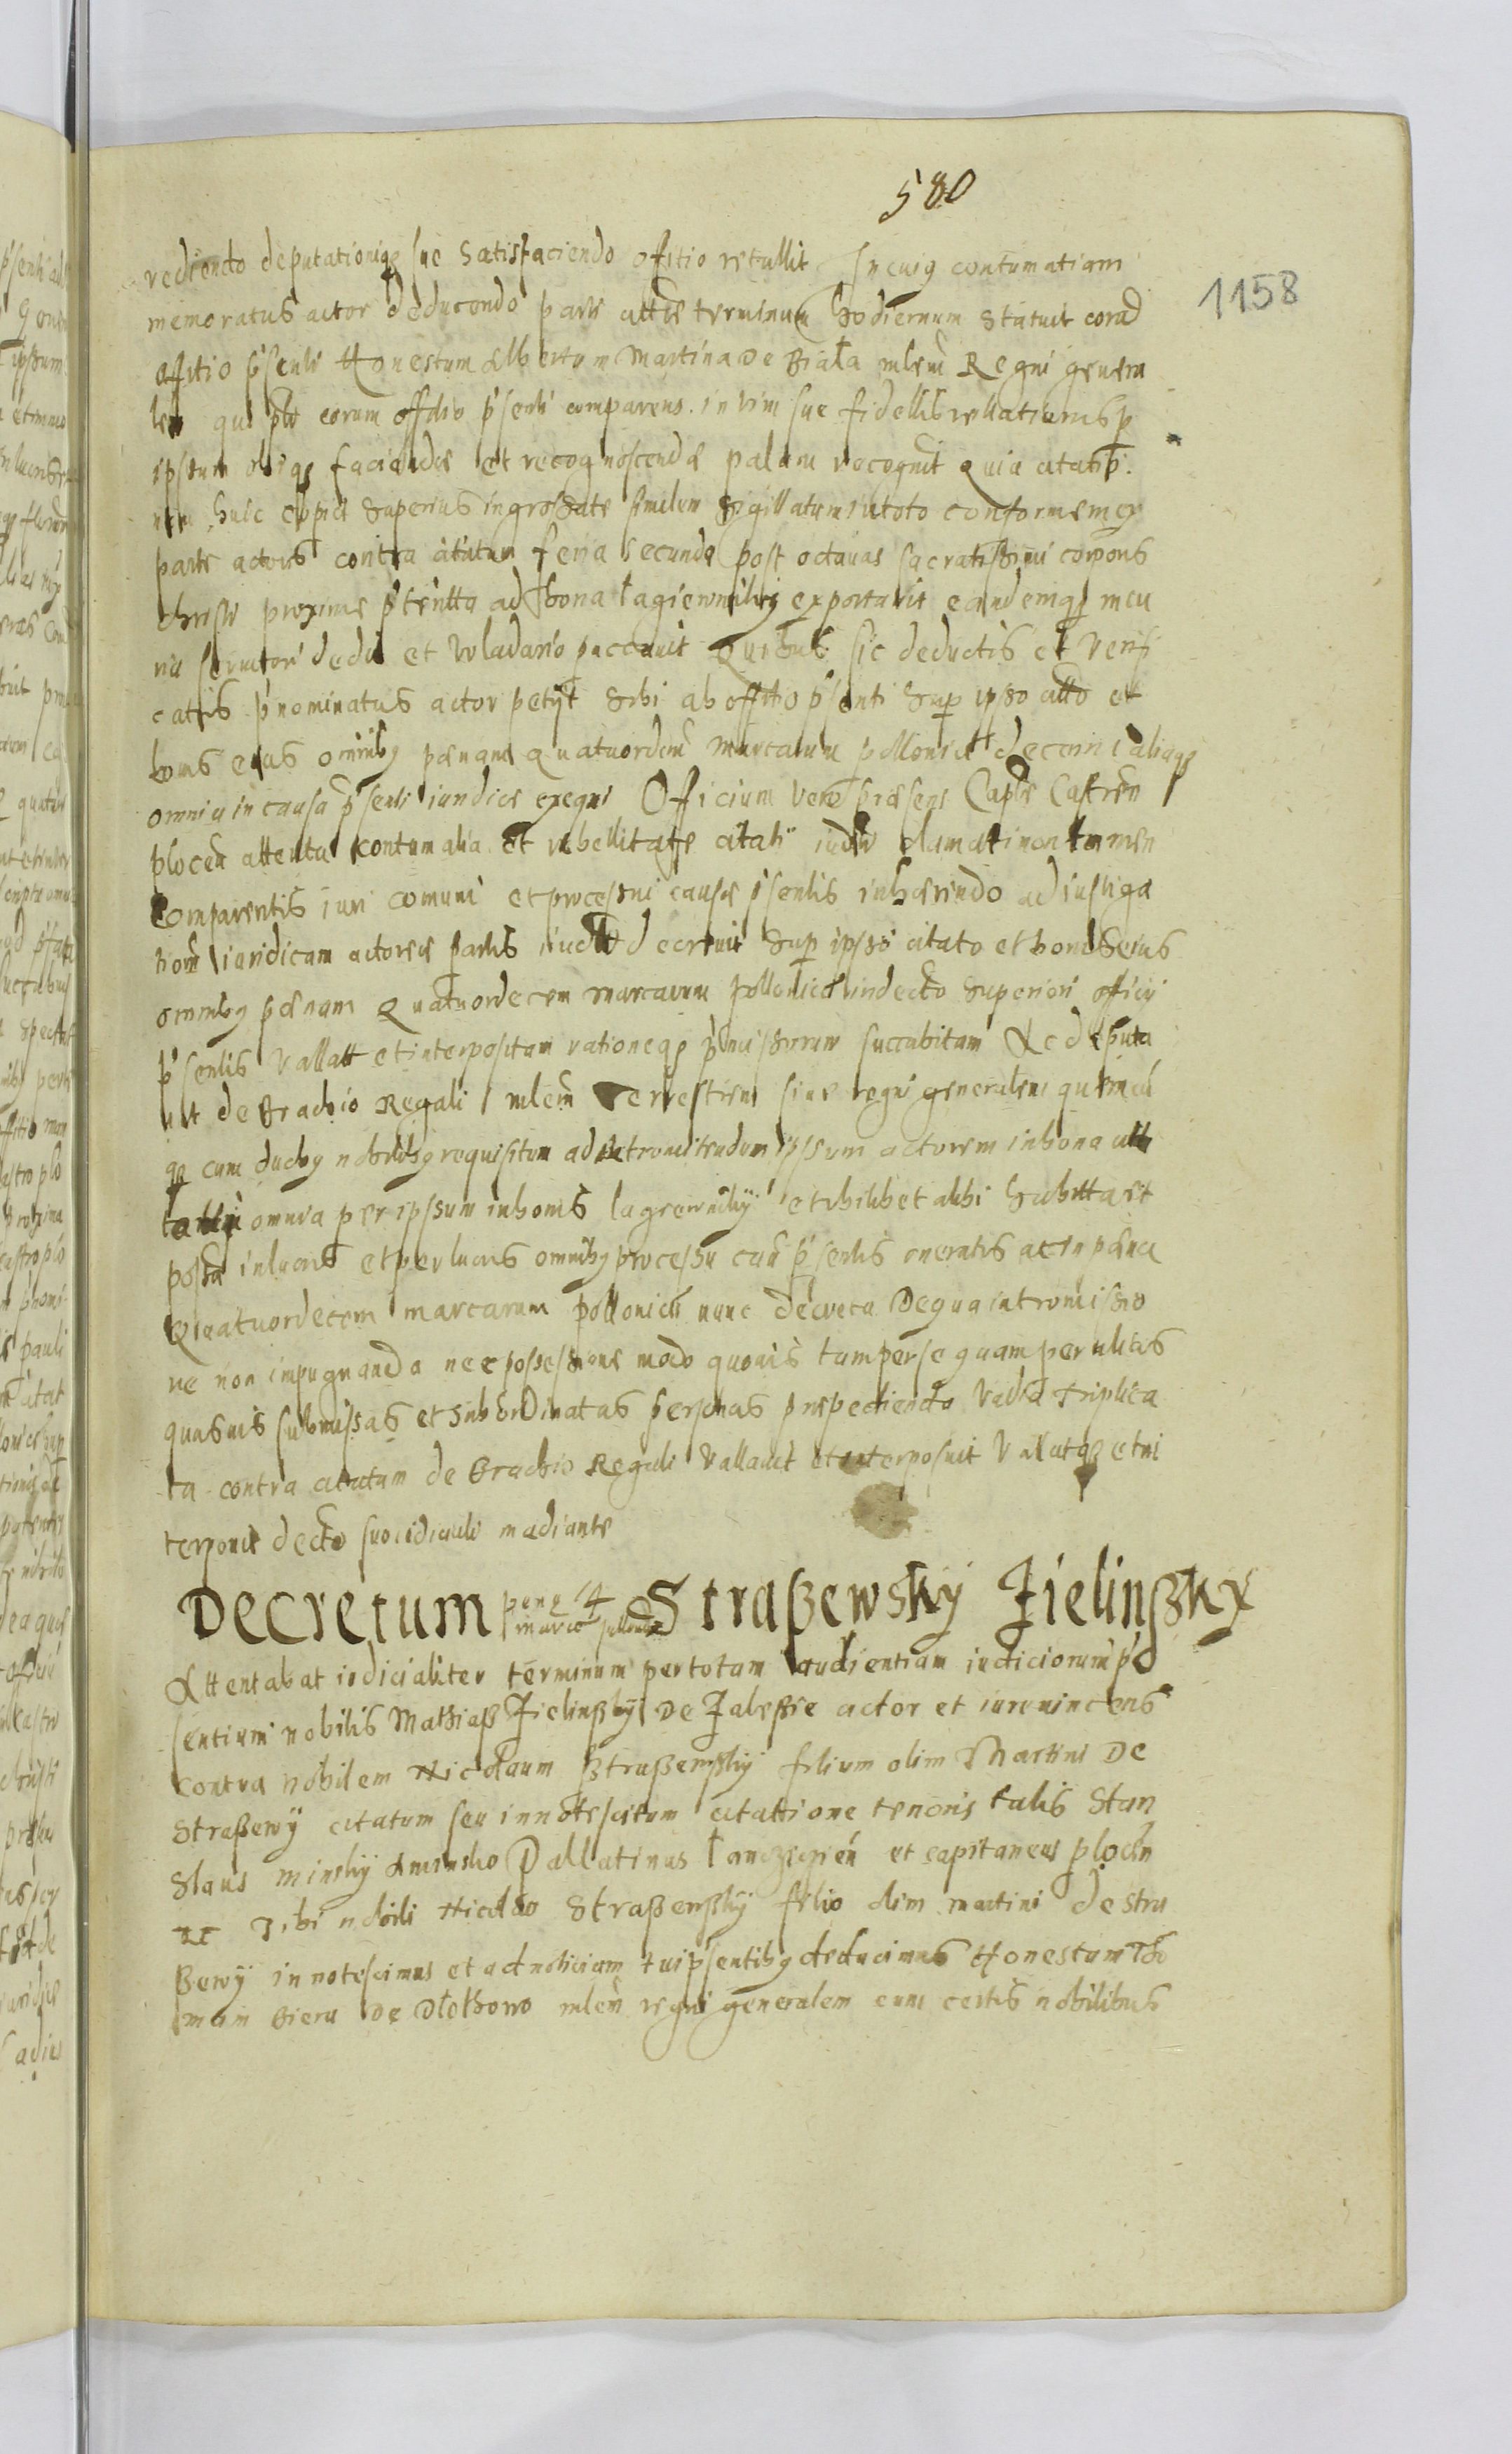 580
1158
rediendo deputationiqʒ sue Satisfaciendo offitio retullit In cuiꝰ contumatiam
memoratus actor deducendo parte attãe terminum hodiernum statuit corã
offitio p̃senti Honestum Albertum Martina de Biała mlem̃ Regni genera
lem qui corum offitio p̃senti comparens in vim sue fidellis rellationis ꝑ
ipsum faciende et recognoscende palam recognovit quia citatio
huic coppiæ Superius ingrossate similem Sigillatam in toto conformem ex
parte actoris contra citatum feria secunda post octavas sacratissimi corporis
christi proxime p̃teritta ad bona Łagiewniky exportavit eandemqʒ
servitori dedit et wladario Quibus sic deductis et verifi
catis p̃nominatus actor petyt Sibi ab offitio p̃senti Suꝑ ipso atto et
bonis eius omnibꝰ pœnam quatuordecem̃ marcarum pollonicał decerni aliaqʒ
omnia in causa p̃senti iuridice exequi Officium vero præsens Capłe Castren
plocen̄ attenta contumatia et rebellitate citati iudicił clamati non tamen
comparentis iuri comuni et processui causæ p̃sentis inhærendo ad instiga
tionem̃ iuridicam actoreæ partis decrevit Suꝑ ipso citato et bonis eius
omnibꝰ pœnam Quatuordecem marcarum pollonical in decto superiori officij
p̃sentis vallatt et interpositam rationeqʒ p̃missorum succubitam Ac deputa
vit de Brachio Regali mlem̃ Terrestrem sive regni generalem quemcũ
qʒ cum duobꝰ nobilibꝰ requisitum ad intromittendum ipsum actorem in bona
omnia per ipsum in bonis Lagiewniky et ubilibet alibi habitta et
possessa in lucris et per lucris omnibꝰ processu cau p̃sentis oneratis ac in pœna
Quatuordecem marcarum pollonicał nunc decreta De qua intromissio
ne non impugnanda nec possessione modo quovis tam per se quam per alias
quasvis submissas et subordinatas personas impediendo vadia triplica
ta contra citatum de Brachio Regali vallavit et interposuit Vallatqʒ et in
terponit decto suo iudiciali mediante
Decretum pene 14 marca pollonical Straßewsky Zielinßky
Attentabat iudicialiter terminum per totam audientiam iudiciorum p̃
sentium nobilis Mathiaß Zielinßky de Zalessie actor et iurevincens
contra nobilem Nicolaum Straßewsky filium olim Martini de
Straßewy citatum seu innotescitum citattione tenoris talis Stany
slaus Minsky de Minsko Pallatinus Lanczicien̄ et capitaneus plocen̄
zc Tibi nobili Nicolao Straßewsky filio olim martini de stra
ßewy innotescimus et ad noticiam tui p̃sentibꝰ deducimus Honestum Tho
mam Biera de Dlothowo mlem̃ regni generalem cum certis nobilibus